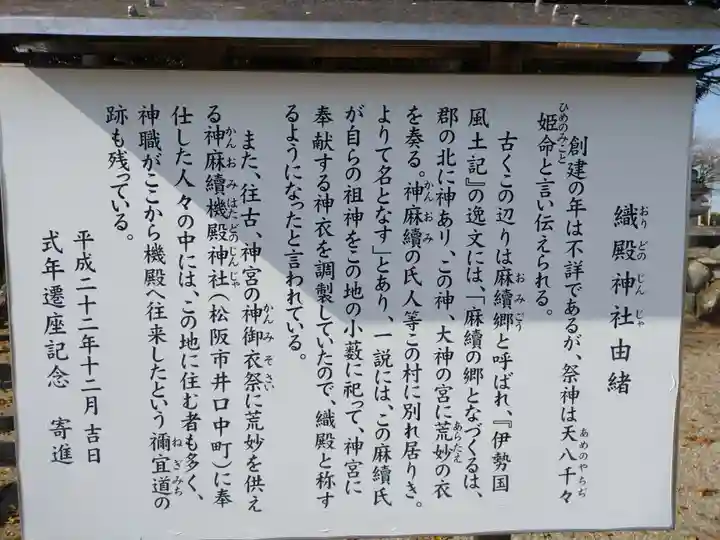 織殿神社由緒
創建の年は不詳であるが、祭神は天八千々
姫命と言い伝えられる。
古くこの辺りは麻績郷と呼ばれ、『伊勢国
風土記』の逸文には、「麻績の郷となづくるは、
郡の北に神あり、この神、大神の宮に荒妙の衣
を奏る。神麻績の氏人等この村に別れ居りき。
よりて名となす」とあり、一説には、この麻績氏
が自らの祖神をこの地の小藪に祀って、神宮に
奉献する神衣を調製していたので、織殿と称す
るようになったと言われている。
また、往古、神宮の神御衣祭に荒妙を供え
る神麻績機殿神社(松阪市井口中町)に奉
仕した人々の中には、この地に住む者も多く、
神職がここから機殿へ往来したという禰宜道の
跡も残っている。
平成二十二年十二月吉日
式年遷座記念 寄進